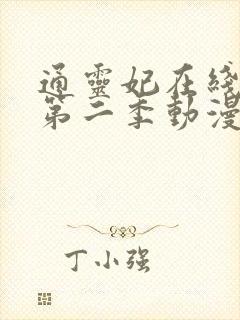 通靈妃在綫
第二季動漫
丁小强